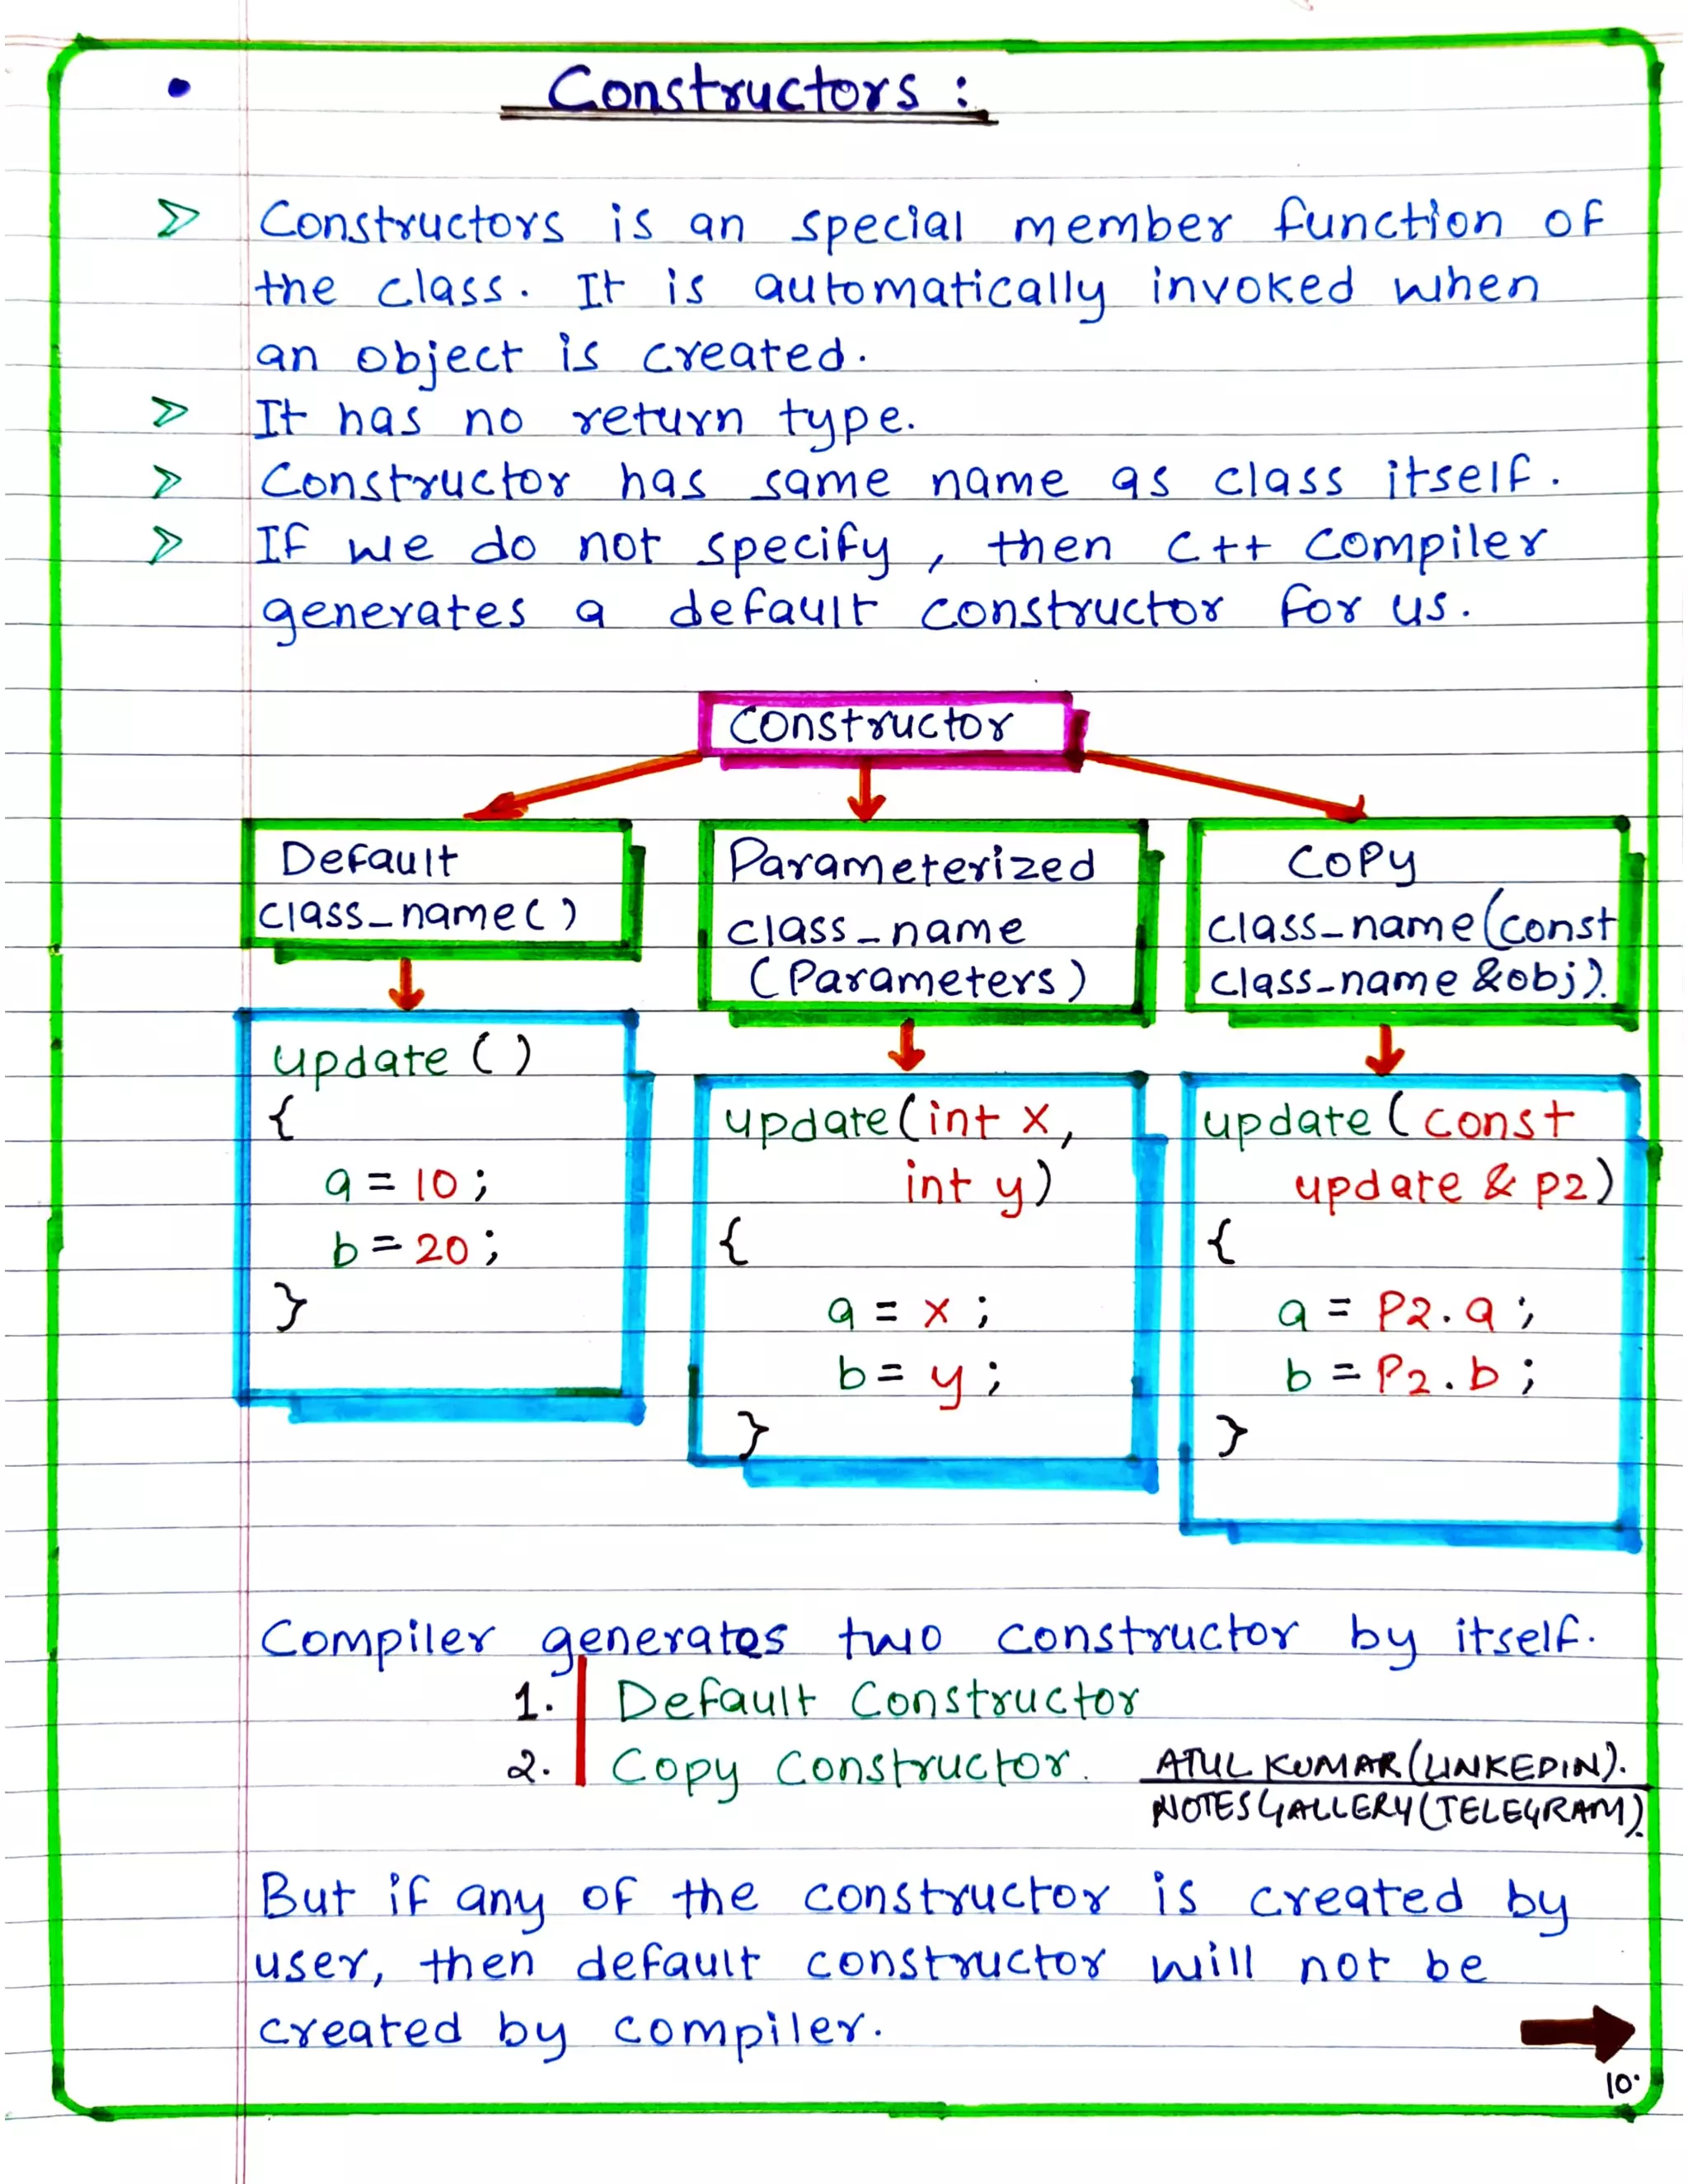 • Constructors :
> Constructors is an special member function of
the class. It is automatically invoked when
an object is created.
> It has no return type.
> Constructor has same name as class itself.
> If we do not specify, then C++ compiler
generates a default constructor for us.
Constructor
Default
class_name()
update ()
{
a = 10;
b = 20;
}
Parameterized
class_name
(Parameters)
update(int x,
int y)
{
a = x;
b = y;
}
COPY
class_name(const
class_name &obj).
update (const
update & P2)
{
a = P2.a;
b = P2.b;
}
Compiler generates two constructor by itself.
1. Default Constructor
2. Copy Constructor.
ATUL KUMAR (LINKEDIN).
NOTES GALLERY (TELEGRAM).
But if any of the constructor is created by
user, then default constructor will not be
created by compiler.
10.